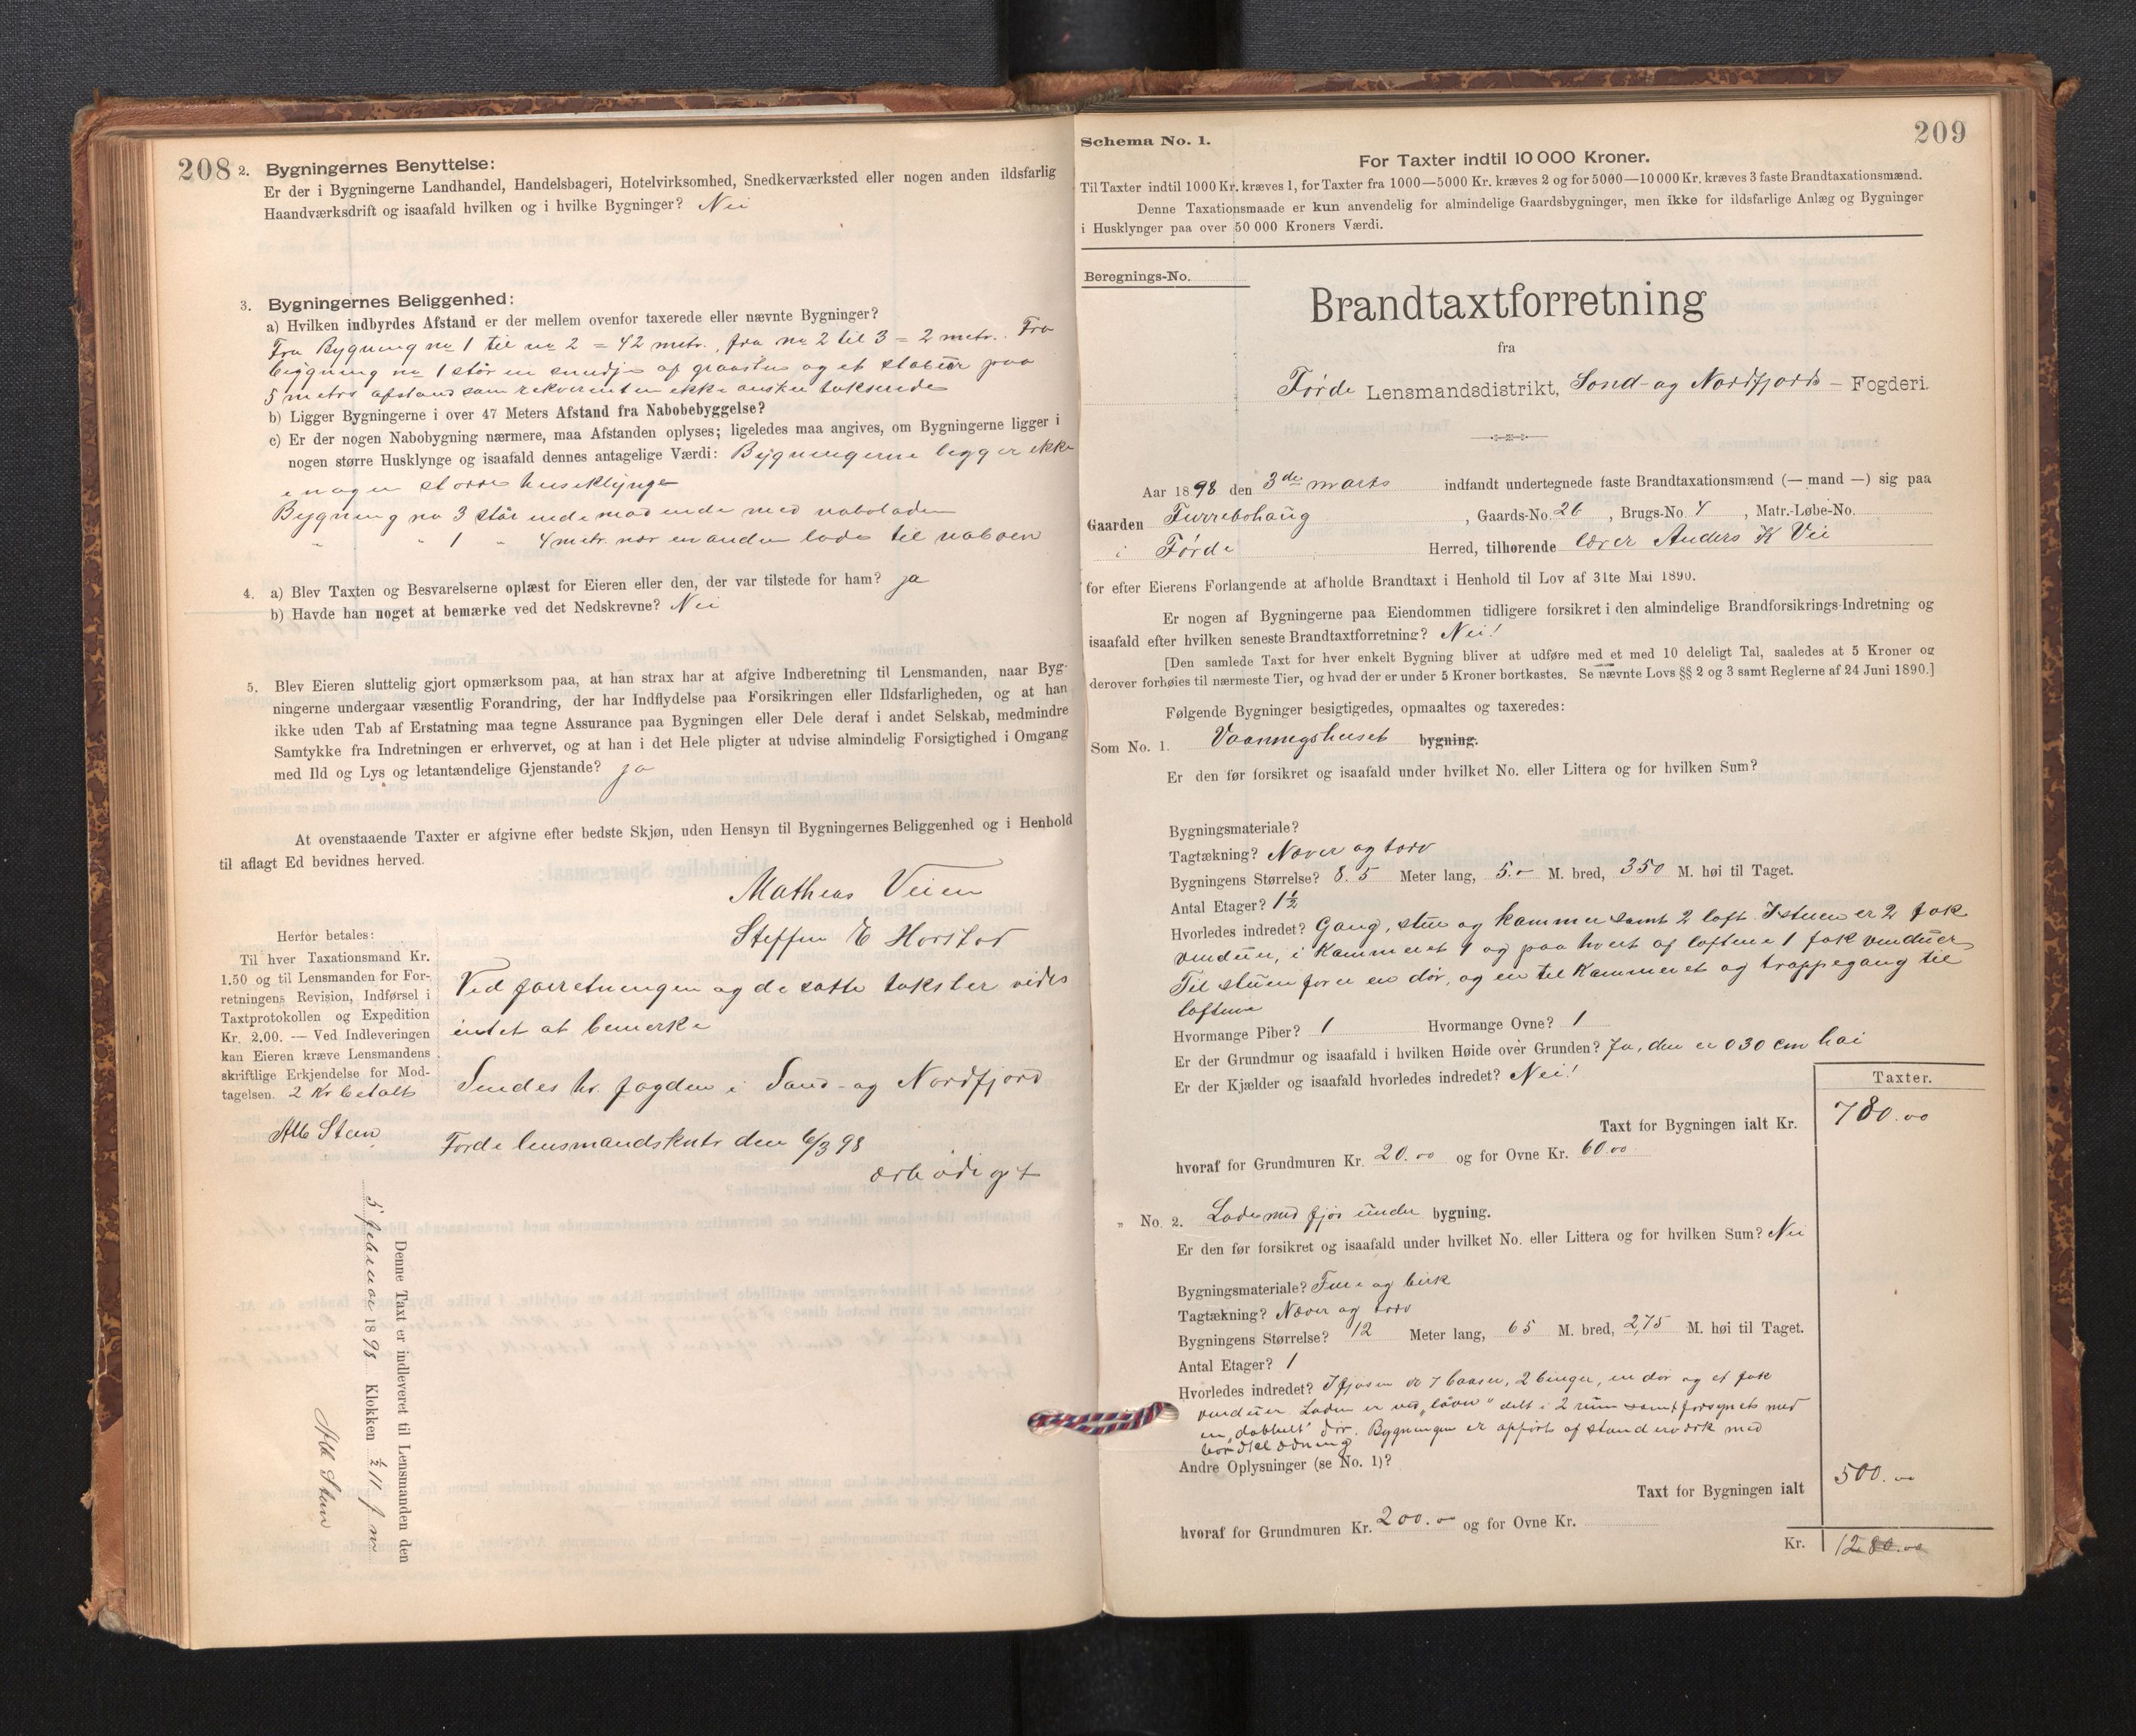 208
2. Bygningernes Benyttelse:
Er der i Bygningerne Landhandel, Handelsbageri, Hotelvirksomhed, Snedkerværksted eller nogen anden ildsfarlig
Haandværksdrift og isaafald hvilken og i hvilke Bygninger? Nei
3. Bygningernes Beliggenhed:
a) Hvilken indbyrdes Afstand er der mellem ovenfor taxerede eller nævnte Bygninger?
Fra Bygning no 1 til no 2 = 42 metr., fra no 2 til 3 = 2 metr. Fra
bygning no 1 står en smedje af graasten og et stabur paa
5 metrs afstand som rekvirenten ikke ønsker takserede
b) Ligger Bygningerne i over 47 Meters Afstand fra Nabobebyggelse?
c) Er der nogen Nabobygning nærmere, maa Afstanden oplyses; ligeledes maa angives, om Bygningerne ligger i
nogen større Husklynge og isaafald dennes antagelige Værdi: Bygningerne ligger ikke
i nogen større huseklynge
Bygning no 3 står ende mod ende med naboladen
" " 1 " 4 metr. nær en anden lade til naboen
4. a) Blev Taxten og Besvarelserne oplæst for Eieren eller den, der var tilstede for ham? ja
b) Havde han noget at bemærke ved det Nedskrevne? Nei
5. Blev Eieren sluttelig gjort opmærksom paa, at han strax har at afgive Indberetning til Lensmanden, naar Byg-
ningerne undergaar væsentlig Forandring, der har Indflydelse paa Forsikringen eller Ildsfarligheden, og at han
ikke uden Tab af Erstatning maa tegne Assurance paa Bygningen eller Dele deraf i andet Selskab, medmindre
Samtykke fra Indretningen er erhvervet, og at han i det Hele pligter at udvise almindelig Forsigtighed i Omgang
med Ild og Lys og letantændelige Gjenstande? ja
At ovenstaaende Taxter er afgivne efter bedste Skjøn, uden Hensyn til Bygningernes Beliggenhed og i Henhold
til aflagt Ed bevidnes herved.
Mathias Veien
Steffen E Horstad
Herfor betales:
Til hver Taxationsmand Kr.
1.50 og til Lensmanden for For-
retningens Revision, Indførsel i
Taxtprotokollen og Expedition
Kr. 2.00. — Ved Indleveringen
kan Eieren kræve Lensmandens
skriftlige Erkjendelse for Mod-
tagelsen. 2 Kr betalt
Alb Steen
Ved forretningen og de satte takster vides
intet at bemerke
Sendes hr. fogden i Sond- og Nordfjord
Førde lensmandskntr den 6/3 98
ærbødigst
Denne Taxt er indleveret til Lensmanden den
5 februar 1898 Klokken ½ 11 f m
Alb Steen
209
Schema No. 1.
For Taxter indtil 10 000 Kroner.
Til Taxter indtil 1000 Kr. kræves 1, for Taxter fra 1000—5000 Kr. kræves 2 og for 5000—10 000 Kr. kræves 3 faste Brandtaxationsmænd.
Denne Taxationsmaade er kun anvendelig for almindelige Gaardsbygninger, men ikke for ildsfarlige Anlæg og Bygninger
i Husklynger paa over 50 000 Kroners Værdi.
Beregnings-No.
Brandtaxtforretning
fra
Førde Lensmandsdistrikt, Sond- og Nordfjords - Fogderi.
Aar 1898 den 3de marts indfandt undertegnede faste Brandtaxationsmænd (— mand —) sig paa
Gaarden Furrebohaug, Gaards-No. 26, Brugs-No. 4, Matr.-Løbe-No.
i Førde Herred, tilhørende lærer Anders K Vei
for efter Eierens Forlangende at afholde Brandtaxt i Henhold til Lov af 31te Mai 1890.
Er nogen af Bygningerne paa Eiendommen tidligere forsikret i den almindelige Brandforsikrings-Indretning og
isaafald efter hvilken seneste Brandtaxtforretning? Nei!
[Den samlede Taxt for hver enkelt Bygning bliver at udføre med et med 10 deleligt Tal, saaledes at 5 Kroner og
derover forhøies til nærmeste Tier, og hvad der er under 5 Kroner bortkastes. Se nævnte Lovs §§ 2 og 3 samt Reglerne af 24 Juni 1890.]
Følgende Bygninger besigtigedes, opmaaltes og taxeredes:
Som No. 1. Vaaningshuset bygning.
Er den før forsikret og isaafald under hvilket No. eller Littera og for hvilken Sum?
Bygningsmateriale?
Tagtækning? Næver og torv
Bygningens Størrelse? 8.5 Meter lang, 5.- M. bred, 350 M. høi til Taget.
Antal Etager? 1½
Hvorledes indredet? Gang, stue og kammer samt 2 loft. I stuen er 2 fak
vinduer, i kammeret 1 og paa hvert af loftene 1 fak vinduer
Til stuen fører en dør, og en til kammeret og trappegang til
loftene
Hvormange Piber? 1 Hvormange Ovne? 1
Er der Grundmur og isaafald i hvilken Høide over Grunden? Ja, den er 030 cm høi
Er der Kjælder og isaafald hvorledes indredet? Nei!
Taxter.
Taxt for Bygningen ialt Kr. 780.00
hvoraf for Grundmuren Kr. 20.00 og for Ovne Kr. 60.00
" No. 2. Lade med fjøs under bygning.
Er den før forsikret og isaafald under hvilket No. eller Littera og for hvilken Sum? Nei
Bygningsmateriale? Furu og birk
Tagtækning? Næver og torv
Bygningens Størrelse? 12 Meter lang, 65 M. bred, 2,75 M. høi til Taget.
Antal Etager? 1
Hvorledes indredet? I fjøsen er 7 baaser, 2 binger, en dør og et fak
vinduer. Laden er ved "låven" delt i 2 rum samt forsynet med
en "dobbelt" dør. Bygningen er opført af standerværk med
bordklædning
Andre Oplysninger (se No. 1)?
Taxt for Bygningen ialt 500.00
hvoraf for Grundmuren Kr. 200.00 og for Ovne Kr.
Kr. 1280.00